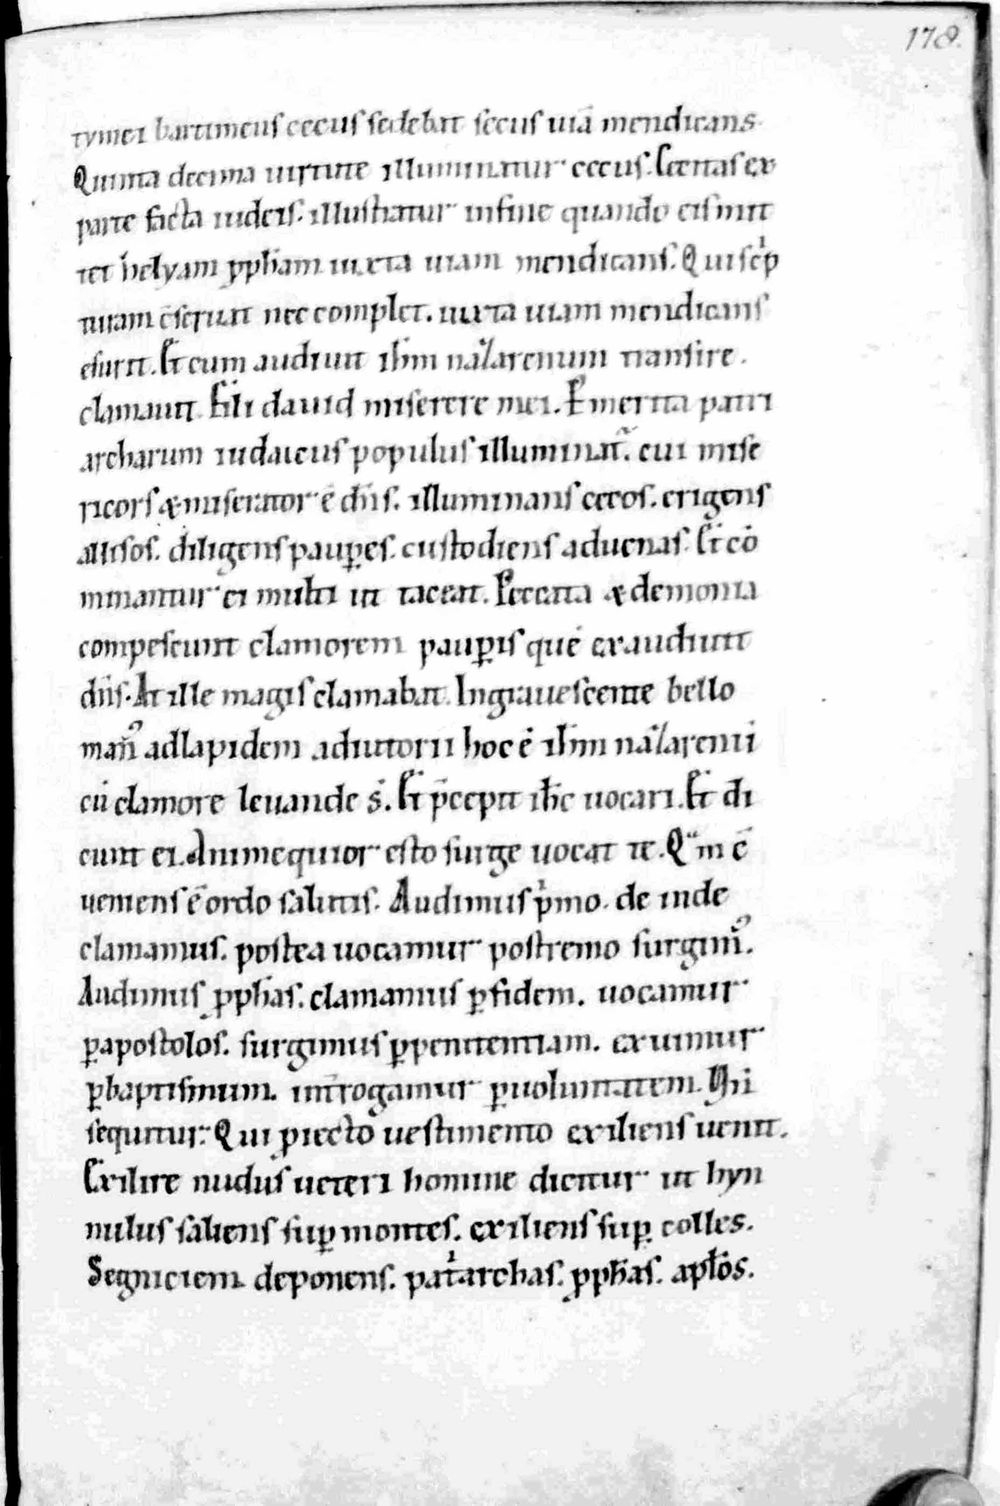 178.
tymei bartimeus cecus sedebat secus uiā mendicans.
Quinta decima uirtute illuminatur cecus. Cecitas ex
parte facta iudeis. illustratur in fine quando eis mit
tet helyam ꝓph̄am iuxta uiam mendicans. Qui scͥp
turam c̄seruit nec complet. iuxta uiam mendicans
esurit. Et cum audiuit ih̄m nazarenum transire.
clamauit. Fili dauid miserere mei. P merita patri
archarum iudaicus populus illuminat᷑. cui mise
ricors & miserator ē dn̄s. illuminans cecos. erigens
allisos. diligens pauꝑes. custodiens aduenas. Et cō
minantur ei multi ut taceat. Peccata & demonia
compescunt clamorem pauꝑis quē exaudiuit
dn̄s. At ille magis clamabat. Ingrauescente bello
man᷒ ad lapidem adiutorii hoc ē ih̄m nazarenū
cū clamore leuande s̄. Et p̄cepit ih̄c uocari. Et di
cunt ei. Animequior esto surge uocat te. Qm̄ ē
ueniens ē ordo salutis. Audimus pͥmo. de inde
clamamus. postea uocamur postremo surgim᷒.
Audimus ꝓph̄as. clamamus ꝑ fidem. uocamur
ꝑ apostolos. surgimus ꝑ penitentiam. exuimur
ꝑ baptismum. int̄rogamur ꝑ uoluntatem.
sequitur. Qui ꝓiecto uestimento exiliens uenit.
Exilire nudus ueteri homine dicitur ut hyn
nulus saliens suꝑ montes. exiliens suꝑ colles.
Segniciem deponens. patͥarchas. ꝓph̄as. apl̄os.